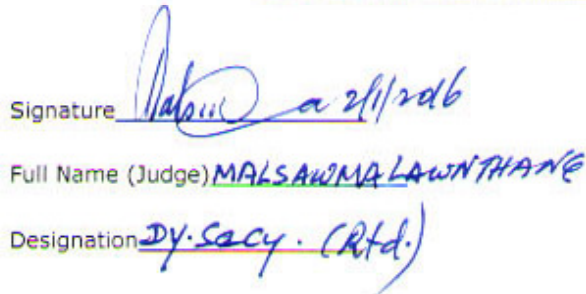 Signature 2/1/2016
Full Name (Judge) MALSAWMA LAWNTHANGE
Designation Dy. Secy. (Rtd.)